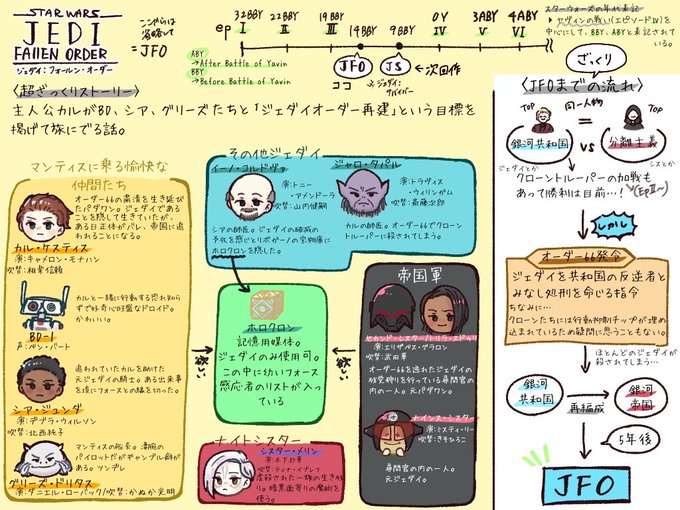 STAR WARS
JEDI
FALLEN ORDER
ジェダイ：フォールン・オーダー
ここからは
省略して
= JFO
ep
32BBY
22BBY
19BBY
14BBY
9BBY
0Y
3ABY
4ABY
I
II
III
IV
V
VI
ABY
→After Battle of Yavin
BBY
→Before Battle of Yavin
JFO
ココ
JS
ジェダイ:
サバイバー
←次回作
スターウォーズの年代表記
▶ヤヴィンの戦い(エピソードIV)を
中心にして、BBY、ABYと表記され
ている。
〈超ざっくりストーリー〉
主人公カルがBD、シア、グリーズたちと「ジェダイオーダー再建」という目標を
掲げて旅にでる話。
マンティスに乗る愉快な
仲間たち
オーダー66の粛清を生き延び
たパダワン。ジェダイである
ことを隠して生きていたが、
ある日正体がバレ、帝国に追
われることになる。
カル・ケスティス
演:キャメロン・モナハン
吹替:相葉信頼
カルと一緒に行動する恐れ知ら
ずで好奇心旺盛なドロイド。
かわいい。
BD-1
声:ベン・バート
追われていたカルを助けた
元ジェダイの騎士。ある出来事
を境にフォースとの繋を切った。
シア・ジュンダ
演:デブラ・ウィルソン
吹替:北西純子
マンティスの船長。凄腕の
パイロットだがギャンブル癖が
ある。ツンデレ
グリーズ・ドリタス
演:ダニエル・ローバック/吹替:かぬか光明
その他ジェダイ
イーノ・コルドヴァ
演:トニー・
アメンドーラ
吹替:山内健嗣
シアの師匠。ジェダイの破滅の
予兆を感じとりボガーノの宝物庫に
ホロクロンを隠した。
ジャロ・タパル
演:トラヴィス・
ウィリンガム
吹替:斎藤次郎
カルの師匠。オーダー66でクローン
トルーパーに殺されてしまう。
ホロクロン
記憶用媒体。
ジェダイのみ使用可。
この中に幼いフォース
感応者のリストが入って
いる
欲しい
欲しい
帝国軍
セカンド・シスター/トリラ・スドゥリ
演:エリザベス・グラロン
吹替:武田華
オーダー66を逃れたジェダイの
残党狩りを行っている尋問官
の内の一人。元パダワン。
ナインス・シスター
演:ミスティ・リー
吹替:きそひろこ
尋問官の内の一人。
元ジェダイ。
ナイトシスター
シスター・メリン
演:木下紗華
吹替:ティナ・イブレフ
虐殺された一族の生き残
り。暗黒面寄りの魔術を
使う。
ざっくり
〈JFOまでの流れ〉
TOP
同一人物
=
TOP
銀河共和国
VS
分離主義
ジェダイとか
シスとか
クローントルーパーの加戦も
あって勝利は目前…！
(EpII〜)
しかし
オーダー66発令
ジェダイを共和国の反逆者と
みなし処刑を命じる指令
ちなみに…
クローンたちには行動抑制チップが埋め
込まれているため疑問に思うこともない。
ほとんどのジェダイが
殺されてしまう…
銀河
共和国
再編成
銀河
帝国
5年後
JFO